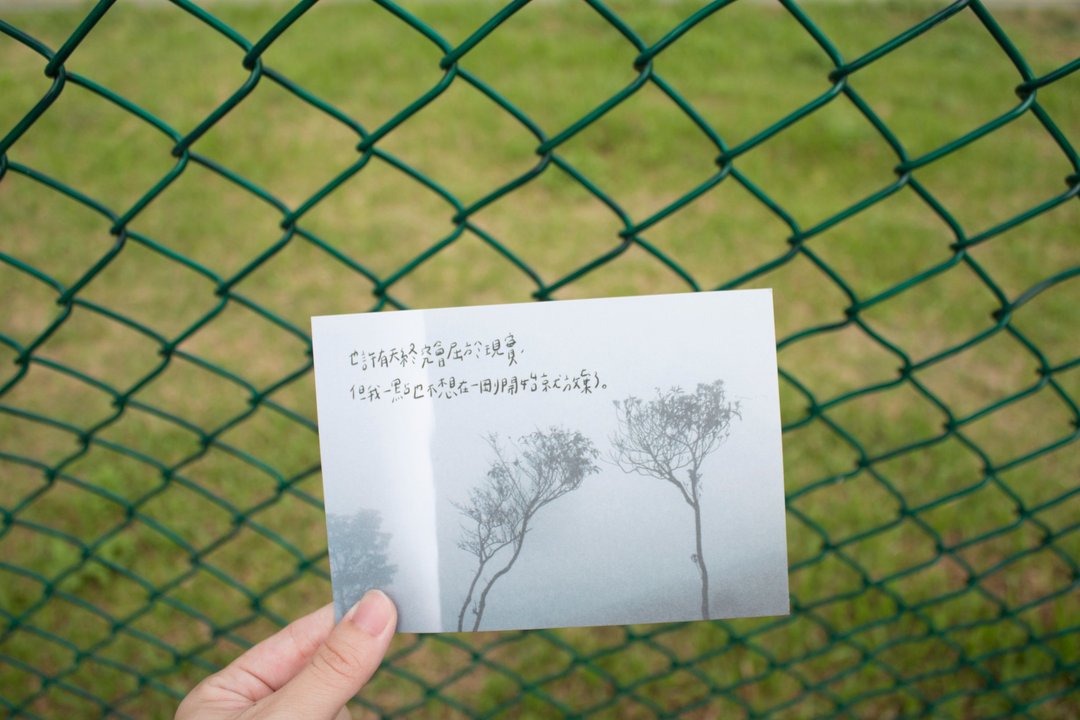 也許有天終究會屈於現實,
但我一點也不想在一切開始就放棄了。